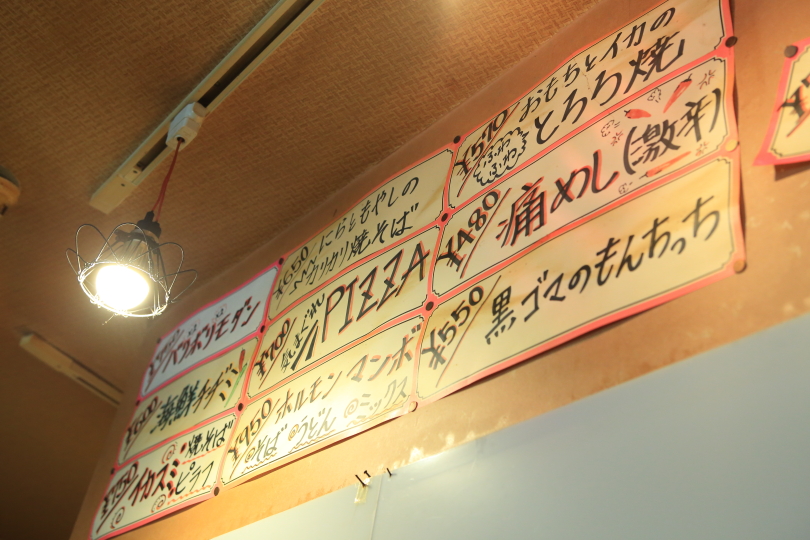 ¥570
ふわふわ
おもちとイカの
とろろ焼
¥480
痛めし(激辛)
¥550
黒ゴマのもんちっち
¥650
にらともやしの
カリカリ焼そば
¥700
気まぐれ
PIZZA
¥950
ホルモンマンボ
そば うどん ミックス
ベリポリモダン
海鮮チヂミ
イカスミ
焼そば
ピラフ